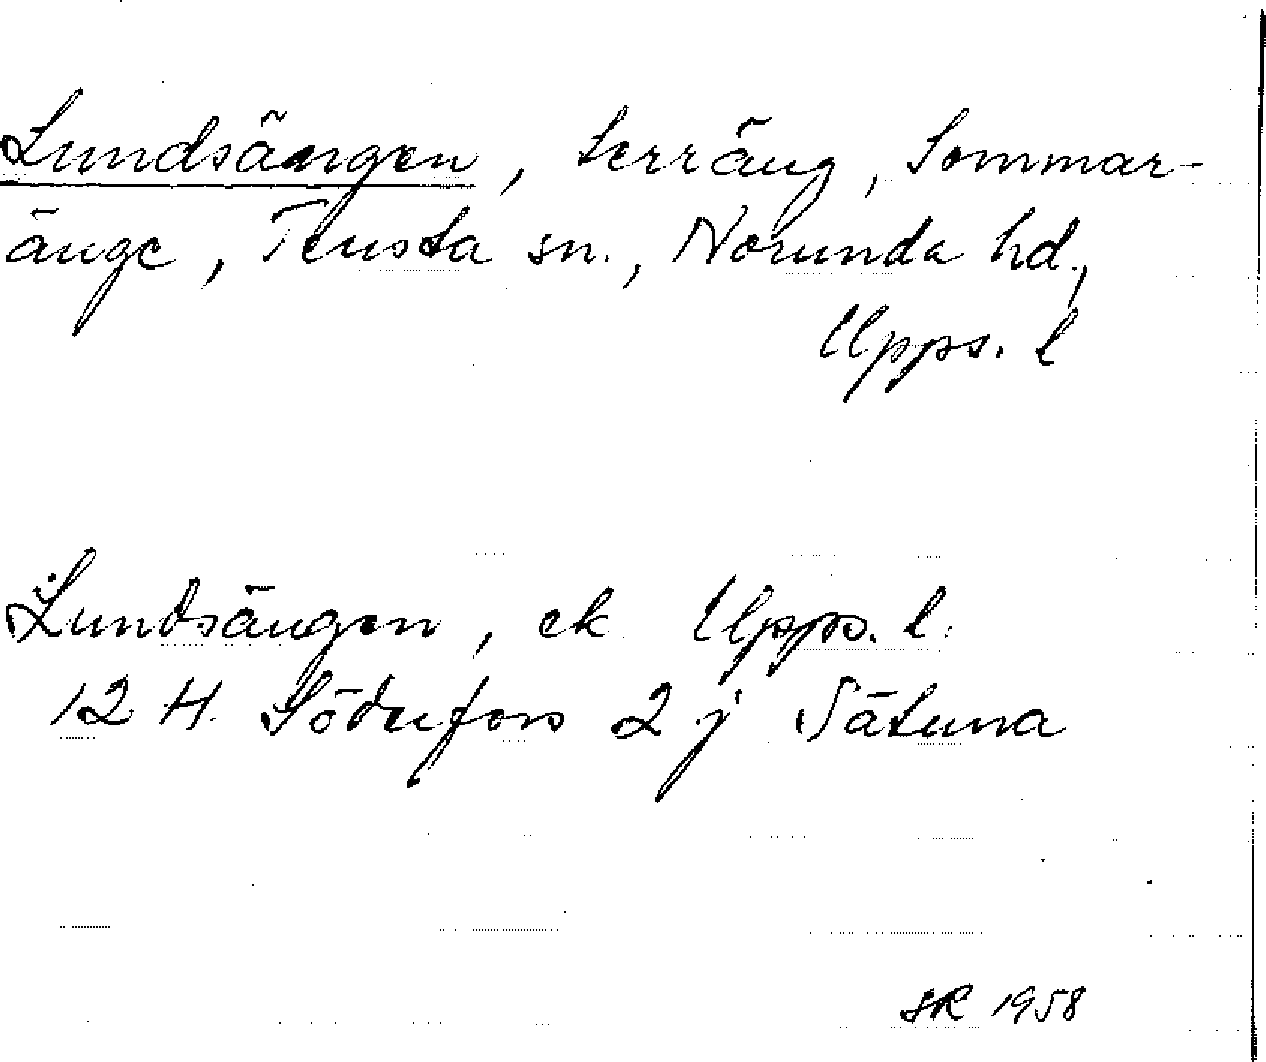 Lundsängen, terräng, Sommar-
änge, Tensta sn., Norunda hd.,
Upps. l
Lundsängen, ek Upps. l.
12 H. Söderfors 2 j Sätuna
SR 1958